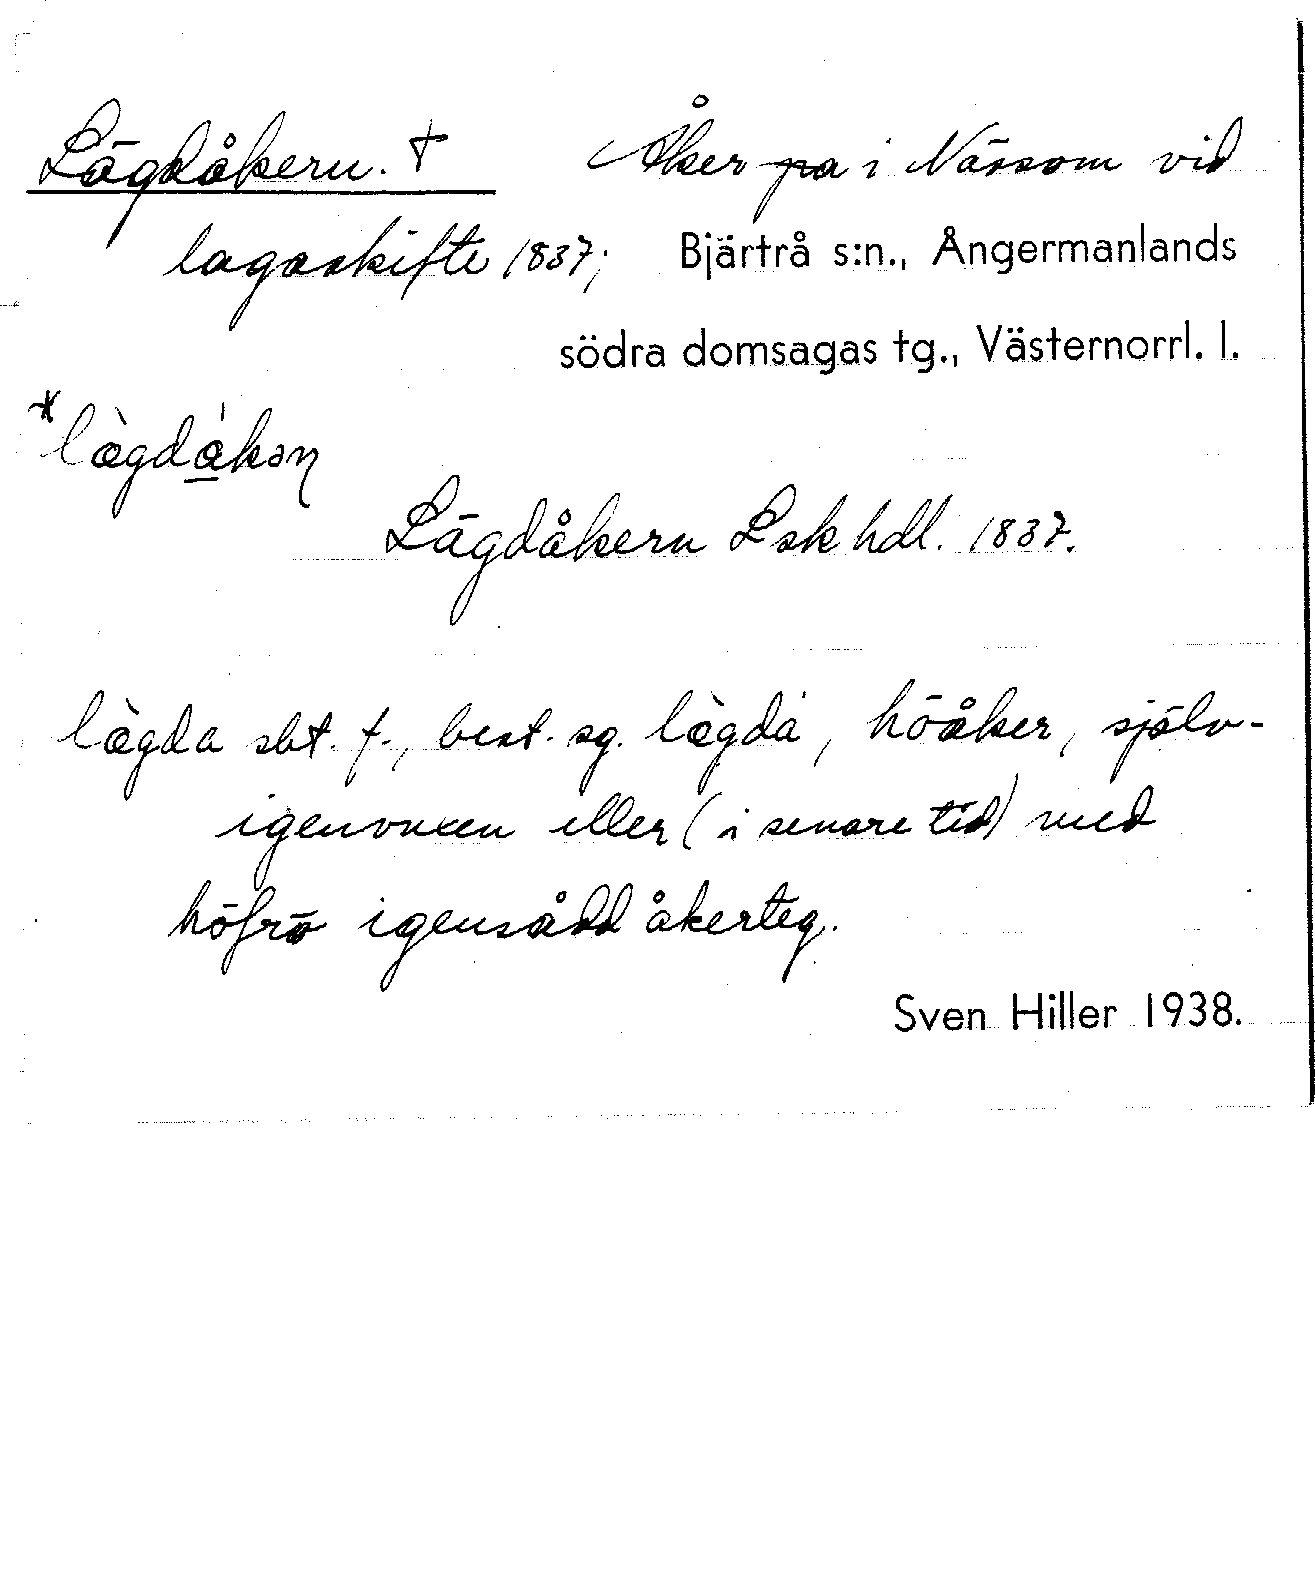 Lägdåkern. † Åker på i Nässom vid
lagaskifte 1837; Bjärtrå s:n., Ångermanlands
södra domsagas tg., Västernorrl. l.
*læ̀gdǻ̲kən
Lägdåkern Lsk hdl. 1837.
læ̀gda sbt. f., best. sg. læ̀gdá, höåker, själv-
igenvuxen eller (i senare tid) med
höfrö igensådd åkerteg.
Sven Hiller 1938.